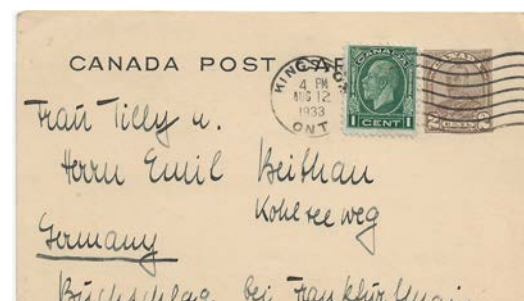 CANADA POST CAR
KINGSTON
4 PM
AUG 12
1933
ONT
CANADA
1 CENT 1
2 CENTS 2
Frau Tilly u.
Herrn Emil Beithan
Kohlseeweg
Germany
Buchschlag bei Frankfurt